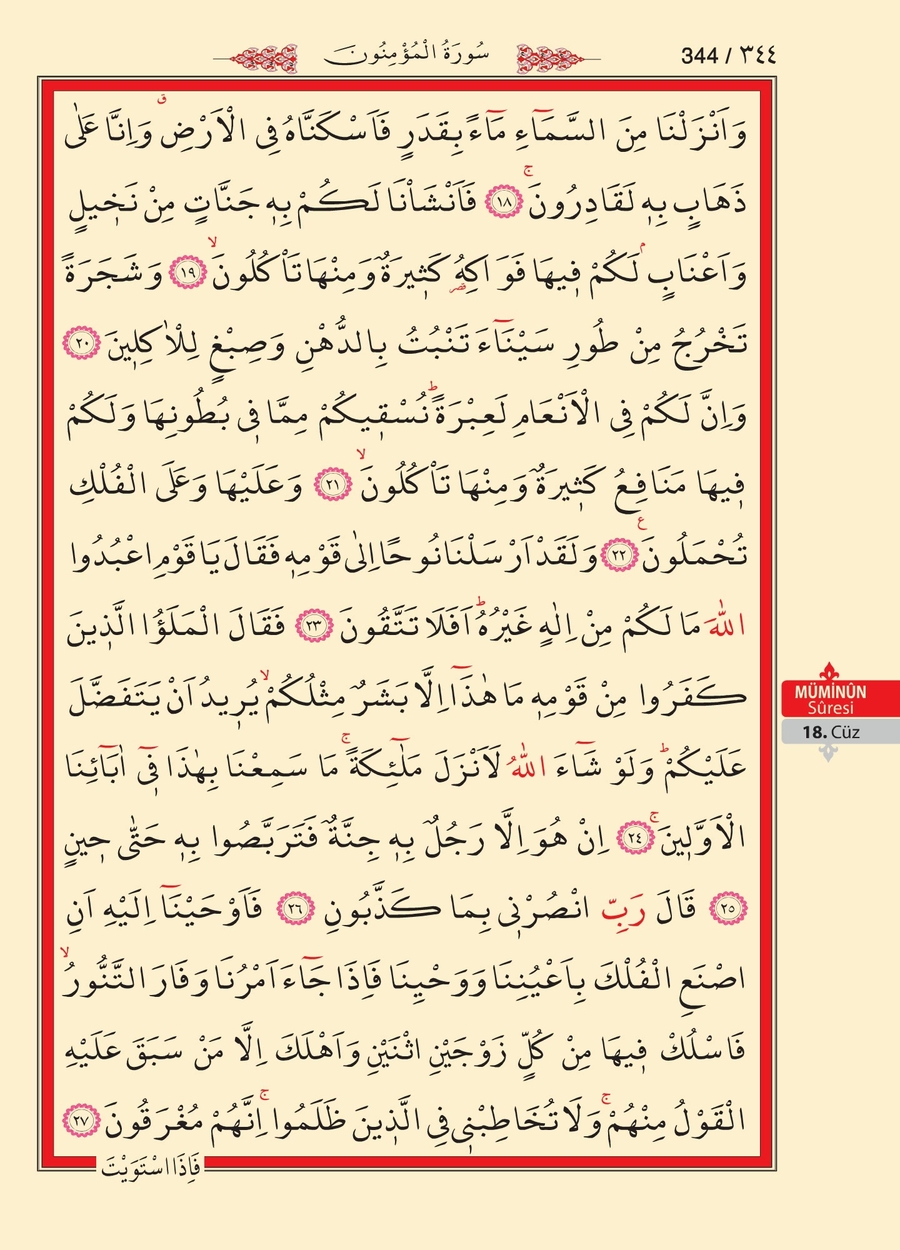 سُورَةُ الْمُؤْمِنُونَ
344 / ٣٤٤
وَاَنْزَلْنَا مِنَ السَّمَٓاءِ مَٓاءً بِقَدَرٍ فَاَسْكَنَّاهُ فِي الْاَرْضِۗ وَاِنَّا عَلٰى
ذَهَابٍ بِه۪ لَقَادِرُونَۚ ﴿١٨﴾ فَاَنْشَأْنَا لَكُمْ بِه۪ جَنَّاتٍ مِنْ نَخ۪يلٍ
وَاَعْنَابٍۢ لَكُمْ ف۪يهَا فَوَاكِهُ كَث۪يرَةٌ وَمِنْهَا تَأْكُلُونَۙ ﴿١٩﴾ وَشَجَرَةً
تَخْرُجُ مِنْ طُورِ سَيْنَٓاءَ تَنْبُتُ بِالدُّهْنِ وَصِبْغٍ لِلْاٰكِل۪ينَ ﴿٢٠﴾
وَاِنَّ لَكُمْ فِي الْاَنْعَامِ لَعِبْرَةًۜ نُسْق۪يكُمْ مِمَّا ف۪ي بُطُونِهَا وَلَكُمْ
ف۪يهَا مَنَافِعُ كَث۪يرَةٌ وَمِنْهَا تَأْكُلُونَۙ ﴿٢١﴾ وَعَلَيْهَا وَعَلَى الْفُلْكِ
تُحْمَلُونَ۟ ﴿٢٢﴾ وَلَقَدْ اَرْسَلْنَا نُوحًا اِلٰى قَوْمِه۪ فَقَالَ يَا قَوْمِ اعْبُدُوا
اللّٰهَ مَا لَكُمْ مِنْ اِلٰهٍ غَيْرُهُۜ اَفَلَا تَتَّقُونَ ﴿٢٣﴾ فَقَالَ الْمَلَؤُا الَّذ۪ينَ
كَفَرُوا مِنْ قَوْمِه۪ مَا هٰذَٓا اِلَّا بَشَرٌ مِثْلُكُمْۙ يُر۪يدُ اَنْ يَتَفَضَّلَ
عَلَيْكُمْۜ وَلَوْ شَٓاءَ اللّٰهُ لَاَنْزَلَ مَلٰٓئِكَةًۚ مَا سَمِعْنَا بِهٰذَا ف۪ٓي اٰبَٓائِنَا
الْاَوَّل۪ينَۚ ﴿٢٤﴾ اِنْ هُوَ اِلَّا رَجُلٌ بِه۪ جِنَّةٌ فَتَرَبَّصُوا بِه۪ حَتّٰى ح۪ينٍ
﴿٢٥﴾ قَالَ رَبِّ انْصُرْن۪ي بِمَا كَذَّبُونِ ﴿٢٦﴾ فَاَوْحَيْنَٓا اِلَيْهِ اَنِ
اصْنَعِ الْفُلْكَ بِاَعْيُنِنَا وَوَحْيِنَا فَاِذَا جَٓاءَ اَمْرُنَا وَفَارَ التَّنُّورُۙ
فَاسْلُكْ ف۪يهَا مِنْ كُلٍّ زَوْجَيْنِ اثْنَيْنِ وَاَهْلَكَ اِلَّا مَنْ سَبَقَ عَلَيْهِ
الْقَوْلُ مِنْهُمْۚ وَلَا تُخَاطِبْن۪ي فِي الَّذ۪ينَ ظَلَمُواۚ اِنَّهُمْ مُغْرَقُونَ ﴿٢٧﴾
فَاِذَا اسْتَوَيْتَ
MÜMİNÛN
Sûresi
18. Cüz